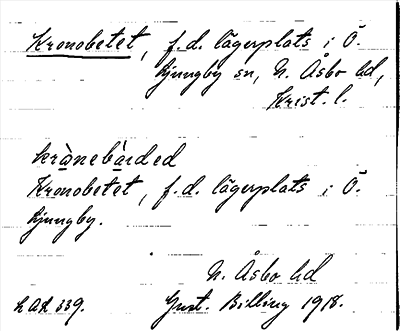 Kronobetet, f.d. lägerplats i Ö.
Ljungby sn, N. Åsbo hd,
Krist. l.
krànebàrded
Kronobetet, f.d. lägerplats i Ö.
Ljungby.
N. Åsbo hd
Gust. Billing 1918.